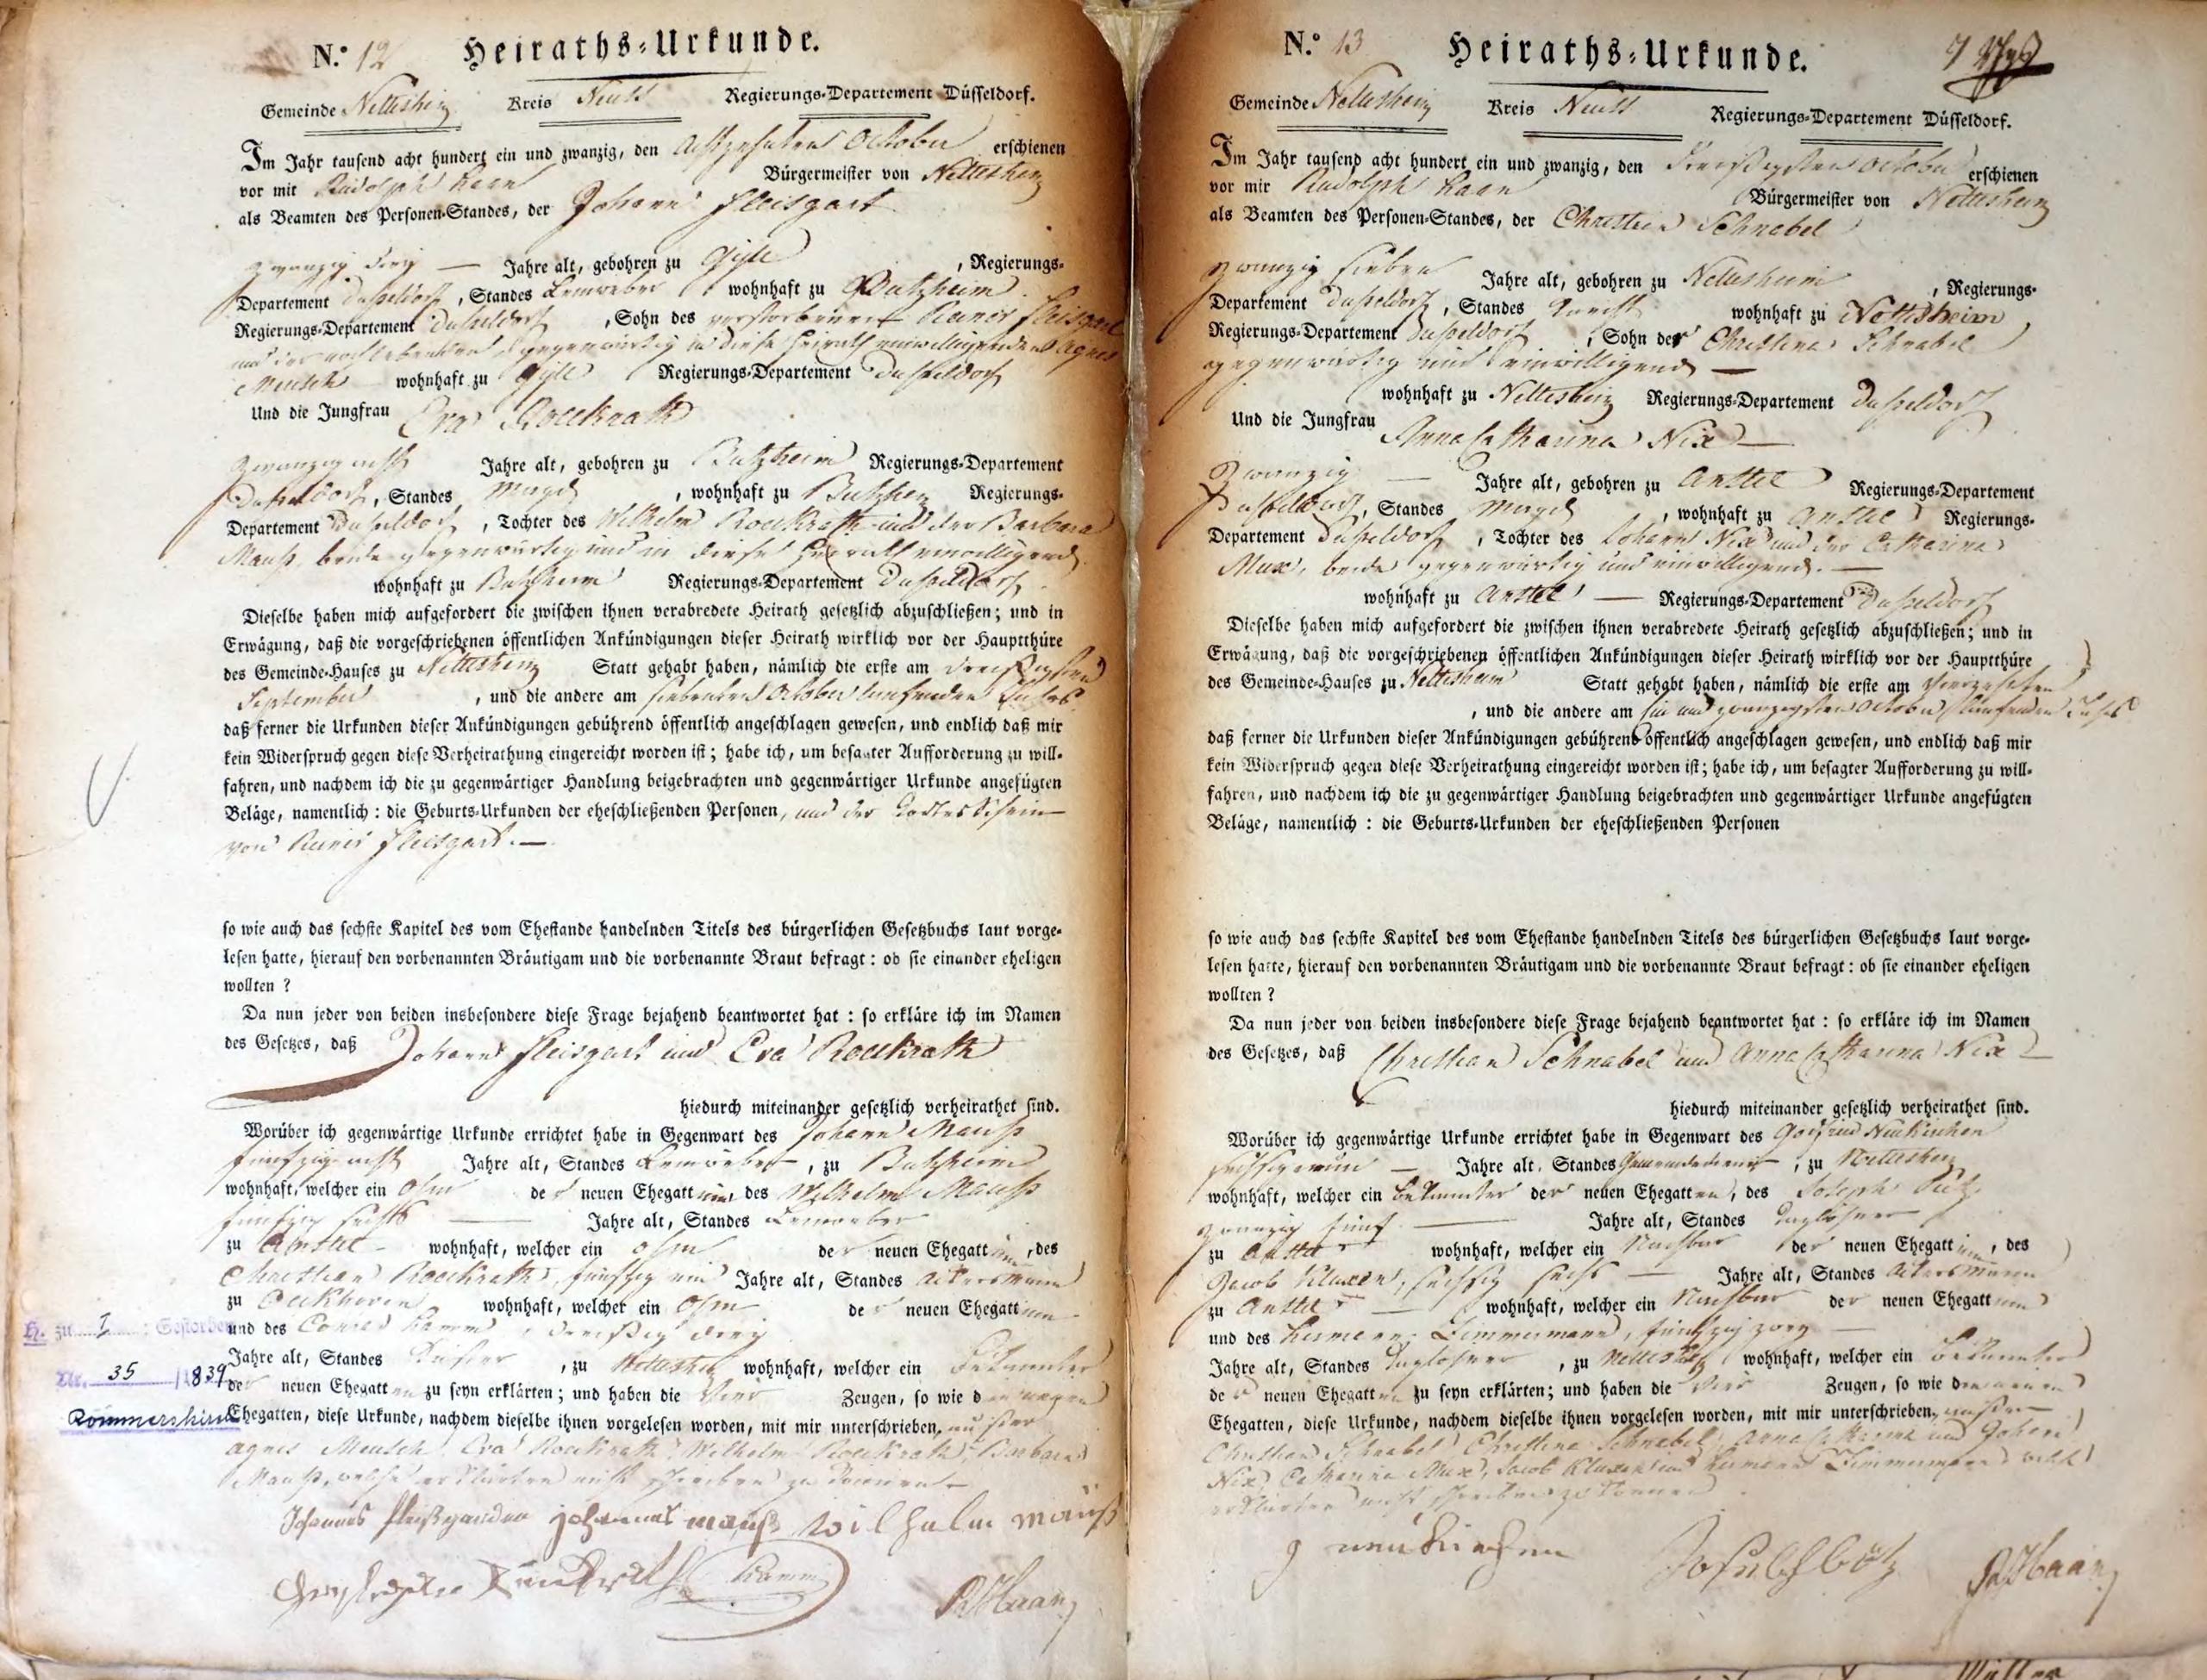 N.º 12 Heiraths-Urkunde.
Gemeinde Nettesheim Kreis Neuss Regierungs-Departement Düsseldorf.
Im Jahr tausend acht hundert ein und zwanzig, den achtzehnten October erschienen
vor mir Rudolph Haan Bürgermeister von Nettesheim
als Beamten des Personen-Standes, der Johann Fleisgart
zwanzig drey — Jahre alt, gebohren zu Gyll, Regierungs-
Departement Dusseldorf, Standes Leinweber wohnhaft zu Butzheim
Regierungs-Departement Dusseldorf, Sohn des verstorbenen Reiner Fleisgart
und der noch lebenden, gegenwärtig in diese Heirath einwilligenden Agnes
Meusch wohnhaft zu Gyll Regierungs-Departement Dusseldorf
Und die Jungfrau Eva Roeckrath
zwanzig acht Jahre alt, gebohren zu Butzheim Regierungs-Departement
Dusseldorf, Standes Magd, wohnhaft zu Butzheim Regierungs-
Departement Dusseldorf, Tochter des Wilhelm Roeckrath und der Barbara
Mauß, beide gegenwärtig und in diese Heirath einwilligend
wohnhaft zu Butzheim Regierungs-Departement Dusseldorf
Dieselbe haben mich aufgefordert die zwischen ihnen verabredete Heirath gesetzlich abzuschließen; und in
Erwägung, daß die vorgeschriebenen öffentlichen Ankündigungen dieser Heirath wirklich vor der Hauptthüre
des Gemeinde-Hauses zu Nettesheim Statt gehabt haben, nämlich die erste am dreißigsten
September, und die andere am siebenten October laufenden Jahres
daß ferner die Urkunden dieser Ankündigungen gebührend öffentlich angeschlagen gewesen, und endlich daß mir
kein Widerspruch gegen diese Verheirathung eingereicht worden ist; habe ich, um besagter Aufforderung zu will-
fahren, und nachdem ich die zu gegenwärtiger Handlung beigebrachten und gegenwärtiger Urkunde angefügten
Beläge, namentlich: die Geburts-Urkunden der eheschließenden Personen, und der Todtesschein
von Reiner Fleisgart. —
so wie auch das sechste Kapitel des vom Ehestande handelnden Titels des bürgerlichen Gesetzbuchs laut vorge-
lesen hatte, hierauf den vorbenannten Bräutigam und die vorbenannte Braut befragt: ob sie einander eheligen
wollten?
Da nun jeder von beiden insbesondere diese Frage bejahend beantwortet hat: so erkläre ich im Namen
des Gesetzes, daß Johann Fleisgart und Eva Roeckrath
hiedurch miteinander gesetzlich verheirathet sind.
Worüber ich gegenwärtige Urkunde errichtet habe in Gegenwart des Johann Mauß
fünfzig acht Jahre alt, Standes Leinweber, zu Butzheim
wohnhaft, welcher ein Ohm der neuen Ehegattinn, des Wilhelm Mauß
fünfzig sechs — Jahre alt, Standes Leinweber
zu Anstel wohnhaft, welcher ein Ohm der neuen Ehegattinn, des
Christian Roeckrath, fünfzig ein Jahre alt, Standes Ackersmann
zu Oeckhoven wohnhaft, welcher ein Ohm der neuen Ehegattinn
und des Conrad Kamm, dreißig drey
Jahre alt, Standes Küster, zu Nettesheim wohnhaft, welcher ein Bekannter
der neuen Ehegatten zu seyn erklärten; und haben die Vier Zeugen, so wie die neuen
Ehegatten, diese Urkunde, nachdem dieselbe ihnen vorgelesen worden, mit mir unterschrieben, außer
Agnes Meusch, Eva Roeckrath, Wilhelm Roeckrath, Barbara
Mauß, welche erklärten nicht schreiben zu können
Johannes johannes mauß wilhelm mauß
Kamm RHaan
H. zu I : Gestorben
Nr. 35 /1839
Rommerskirch
N.º 13 Heiraths-Urkunde.
Gemeinde Nettesheim Kreis Neuss Regierungs-Departement Düsseldorf.
Im Jahr tausend acht hundert ein und zwanzig, den dreißigsten October erschienen
vor mir Rudolph Haan Bürgermeister von Nettesheim
als Beamten des Personen-Standes, der Christian Schnabel
zwanzig sieben Jahre alt, gebohren zu Nettesheim, Regierungs-
Departement Dusseldorf, Standes Knecht wohnhaft zu Nettesheim
Regierungs-Departement Dusseldorf, Sohn der Christina Schnabel
gegenwärtig und einwilligend —
wohnhaft zu Nettesheim Regierungs-Departement Dusseldorf
Und die Jungfrau Anna Catharina Nix —
Zwanzig — Jahre alt, gebohren zu Anstel Regierungs-Departement
Dusseldorf, Standes Magd, wohnhaft zu Anstel Regierungs-
Departement Dusseldorf, Tochter des Johann Nix und der Catharina
Mux, beide gegenwärtig und einwilligend. —
wohnhaft zu Anstel — Regierungs-Departement Dusseldorf
Dieselbe haben mich aufgefordert die zwischen ihnen verabredete Heirath gesetzlich abzuschließen; und in
Erwägung, daß die vorgeschriebenen öffentlichen Ankündigungen dieser Heirath wirklich vor der Hauptthüre
des Gemeinde-Hauses zu Nettesheim Statt gehabt haben, nämlich die erste am vierzehnten
, und die andere am ein und zwanzigsten October laufenden Jahres
daß ferner die Urkunden dieser Ankündigungen gebührend öffentlich angeschlagen gewesen, und endlich daß mir
kein Widerspruch gegen diese Verheirathung eingereicht worden ist; habe ich, um besagter Aufforderung zu will-
fahren, und nachdem ich die zu gegenwärtiger Handlung beigebrachten und gegenwärtiger Urkunde angefügten
Beläge, namentlich: die Geburts-Urkunden der eheschließenden Personen
so wie auch das sechste Kapitel des vom Ehestande handelnden Titels des bürgerlichen Gesetzbuchs laut vorge-
lesen hatte, hierauf den vorbenannten Bräutigam und die vorbenannte Braut befragt: ob sie einander eheligen
wollten?
Da nun jeder von beiden insbesondere diese Frage bejahend beantwortet hat: so erkläre ich im Namen
des Gesetzes, daß Christian Schnabel und Anna Catharina Nix
hiedurch miteinander gesetzlich verheirathet sind.
Worüber ich gegenwärtige Urkunde errichtet habe in Gegenwart des Godfried Neukirchen
sechszig neun — Jahre alt, Standes Gemeindediener, zu Nettesheim
wohnhaft, welcher ein Bekannter der neuen Ehegatten, des Joseph Pütz
zwanzig fünf — Jahre alt, Standes Taglöhner
zu Anstel wohnhaft, welcher ein Nachbar der neuen Ehegattinn, des
Jacob Kluxen, sechszig sechs — Jahre alt, Standes Ackersmann
zu Anstel — wohnhaft, welcher ein Nachbar der neuen Ehegattinn
und des Hermann Zimmermann, fünfzig zwey —
Jahre alt, Standes Taglöhner, zu Nettesheim wohnhaft, welcher ein Bekannter
der neuen Ehegatten zu seyn erklärten; und haben die Vier Zeugen, so wie die neuen
Ehegatten, diese Urkunde, nachdem dieselbe ihnen vorgelesen worden, mit mir unterschrieben, außer
Christian Schnabel, Christina Schnabel, Anna Catharina und Johann
Nix, Catharina Mux, Jacob Kluxen und Hermann Zimmermann welche
erklärten nicht schreiben zu können
g neukirchen RHaan